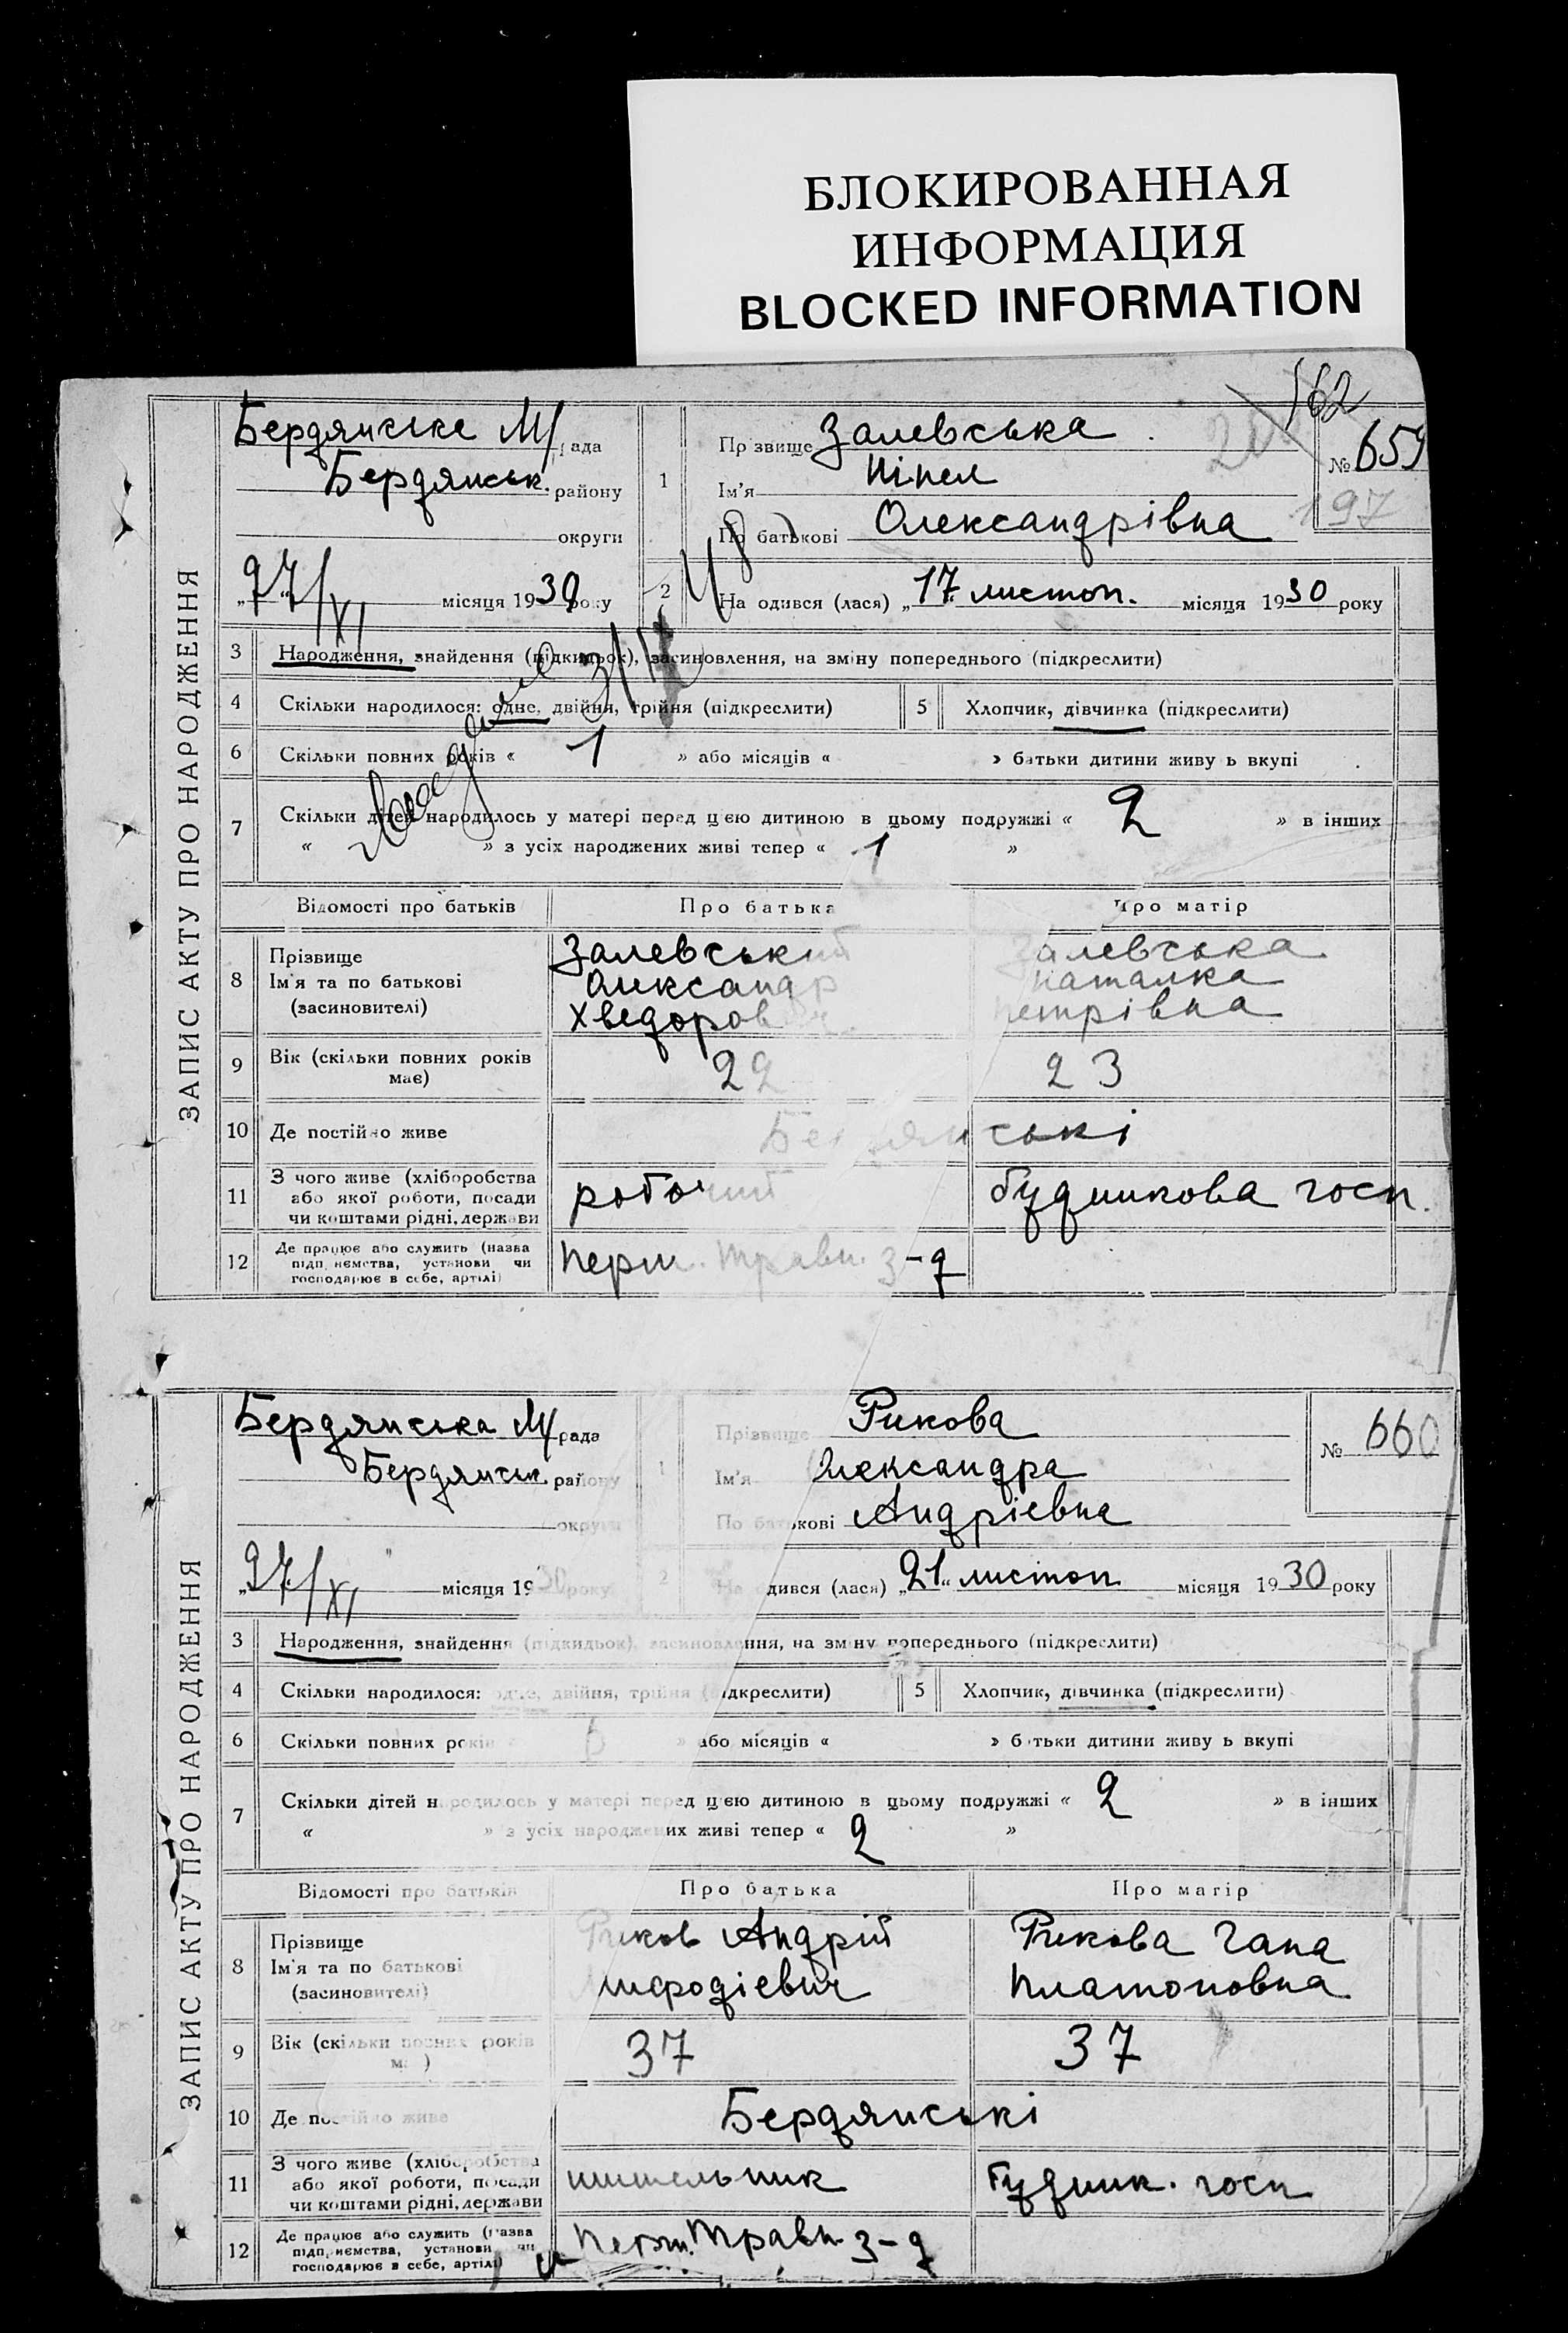 БЛОКИРОВАННАЯ
ИНФОРМАЦИЯ
BLOCKED INFORMATION
ЗАПИС АКТУ ПРО НАРОДЖЕННЯ
162
Бердянська М/рада
Бердянськ. району
округи
27/XI місяця 1930 року
1
Прізвище Залевська
Ім'я Нінел
По батькові Олександрівна
№ 659
197
2
Народився (лася) „17" листоп. місяця 1930 року
3 Народження, знайдення (підкидьок), засиновлення, на зміну попереднього (підкреслити)
4 Скільки народилося: одне, двійня, трійня (підкреслити)
5 Хлопчик, дівчинка (підкреслити)
6 Скільки повних років « 1 » або місяців « » батьки дитини живуть вкупі
7 Скільки дітей народилось у матері перед цією дитиною в цьому подружжі « 2 » в інших
« » з усіх народжених живі тепер « 1 »
Відомості про батьків Про батька Про матір
8 Прізвище Залевський Залевська
Ім'я та по батькові Олександр Наталка
(засиновителі) Хведорович Петрівна
9 Вік (скільки повних років має) 22 23
10 Де постійно живе Бердянські
11 З чого живе (хліборобства
або якої роботи, посади робочий будинкова госп.
чи коштами рідні, держави
12 Де працює або служить (назва
підприємства, установи чи Перш. Травн. з-д
господарює в себе, артілі)
ЗАПИС АКТУ ПРО НАРОДЖЕННЯ
Бердянська М/рада
Бердянськ. району
округи
„27/XI місяця 1930 року
1
Прізвище Рикова
Ім'я Олександра
По батькові Андріевна
№ 660
2
Народився (лася) „21" листоп місяця 1930 року
3 Народження, знайдення (підкидьок), засиновлення, на зміну попереднього (підкреслити)
4 Скільки народилося: одне, двійня, трійня (підкреслити)
5 Хлопчик, дівчинка (підкреслити)
6 Скільки повних років « 6 » або місяців « » батьки дитини живуть вкупі
7 Скільки дітей народилось у матері перед цією дитиною в цьому подружжі « 2 » в інших
« » з усіх народжених живі тепер « 2 »
Відомості про батьків Про батька Про матір
8 Прізвище Риков Андрій Рикова Гана
Ім'я та по батькові Платоновна
(засиновителі)
9 Вік (скільки повних років має) 37 37
10 Де постійно живе Бердянські
11 З чого живе (хліборобства
або якої роботи, посади будинк. госп
чи коштами рідні, держави
12 Де працює або служить (назва
підприємства, установи чи Перш. Травн з-д
господарює в себе, артілі)